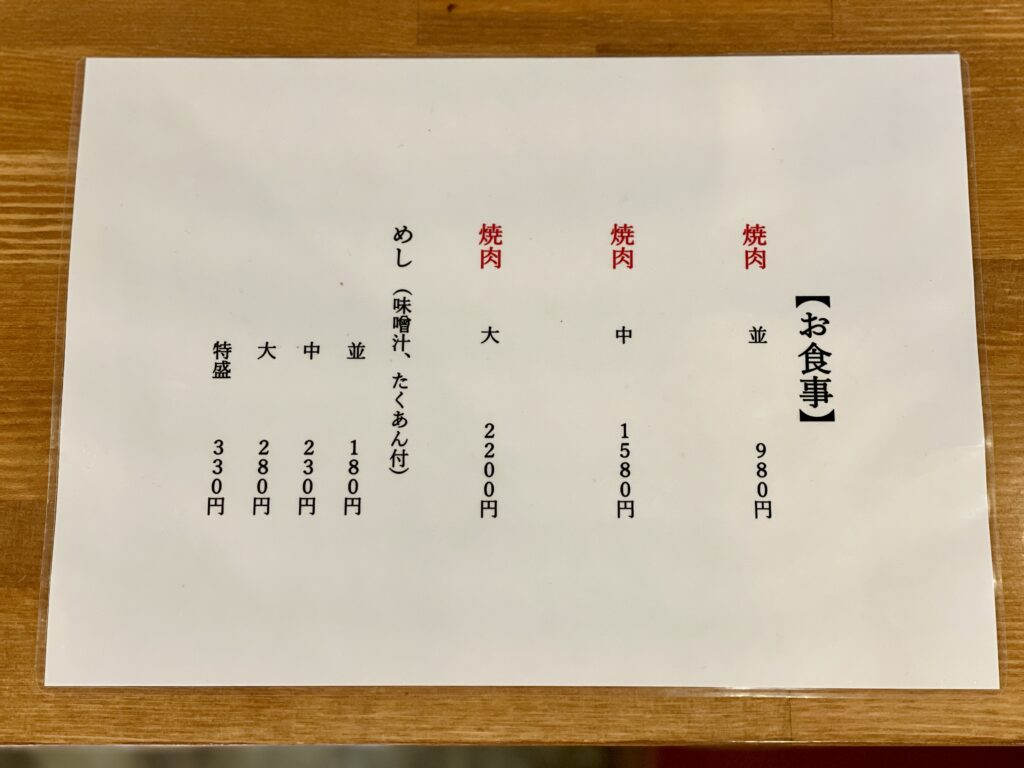 【お食事】
焼肉 並 980円
焼肉 中 1580円
焼肉 大 2200円
めし（味噌汁、たくあん付）
並 180円
中 230円
大 280円
特盛 330円